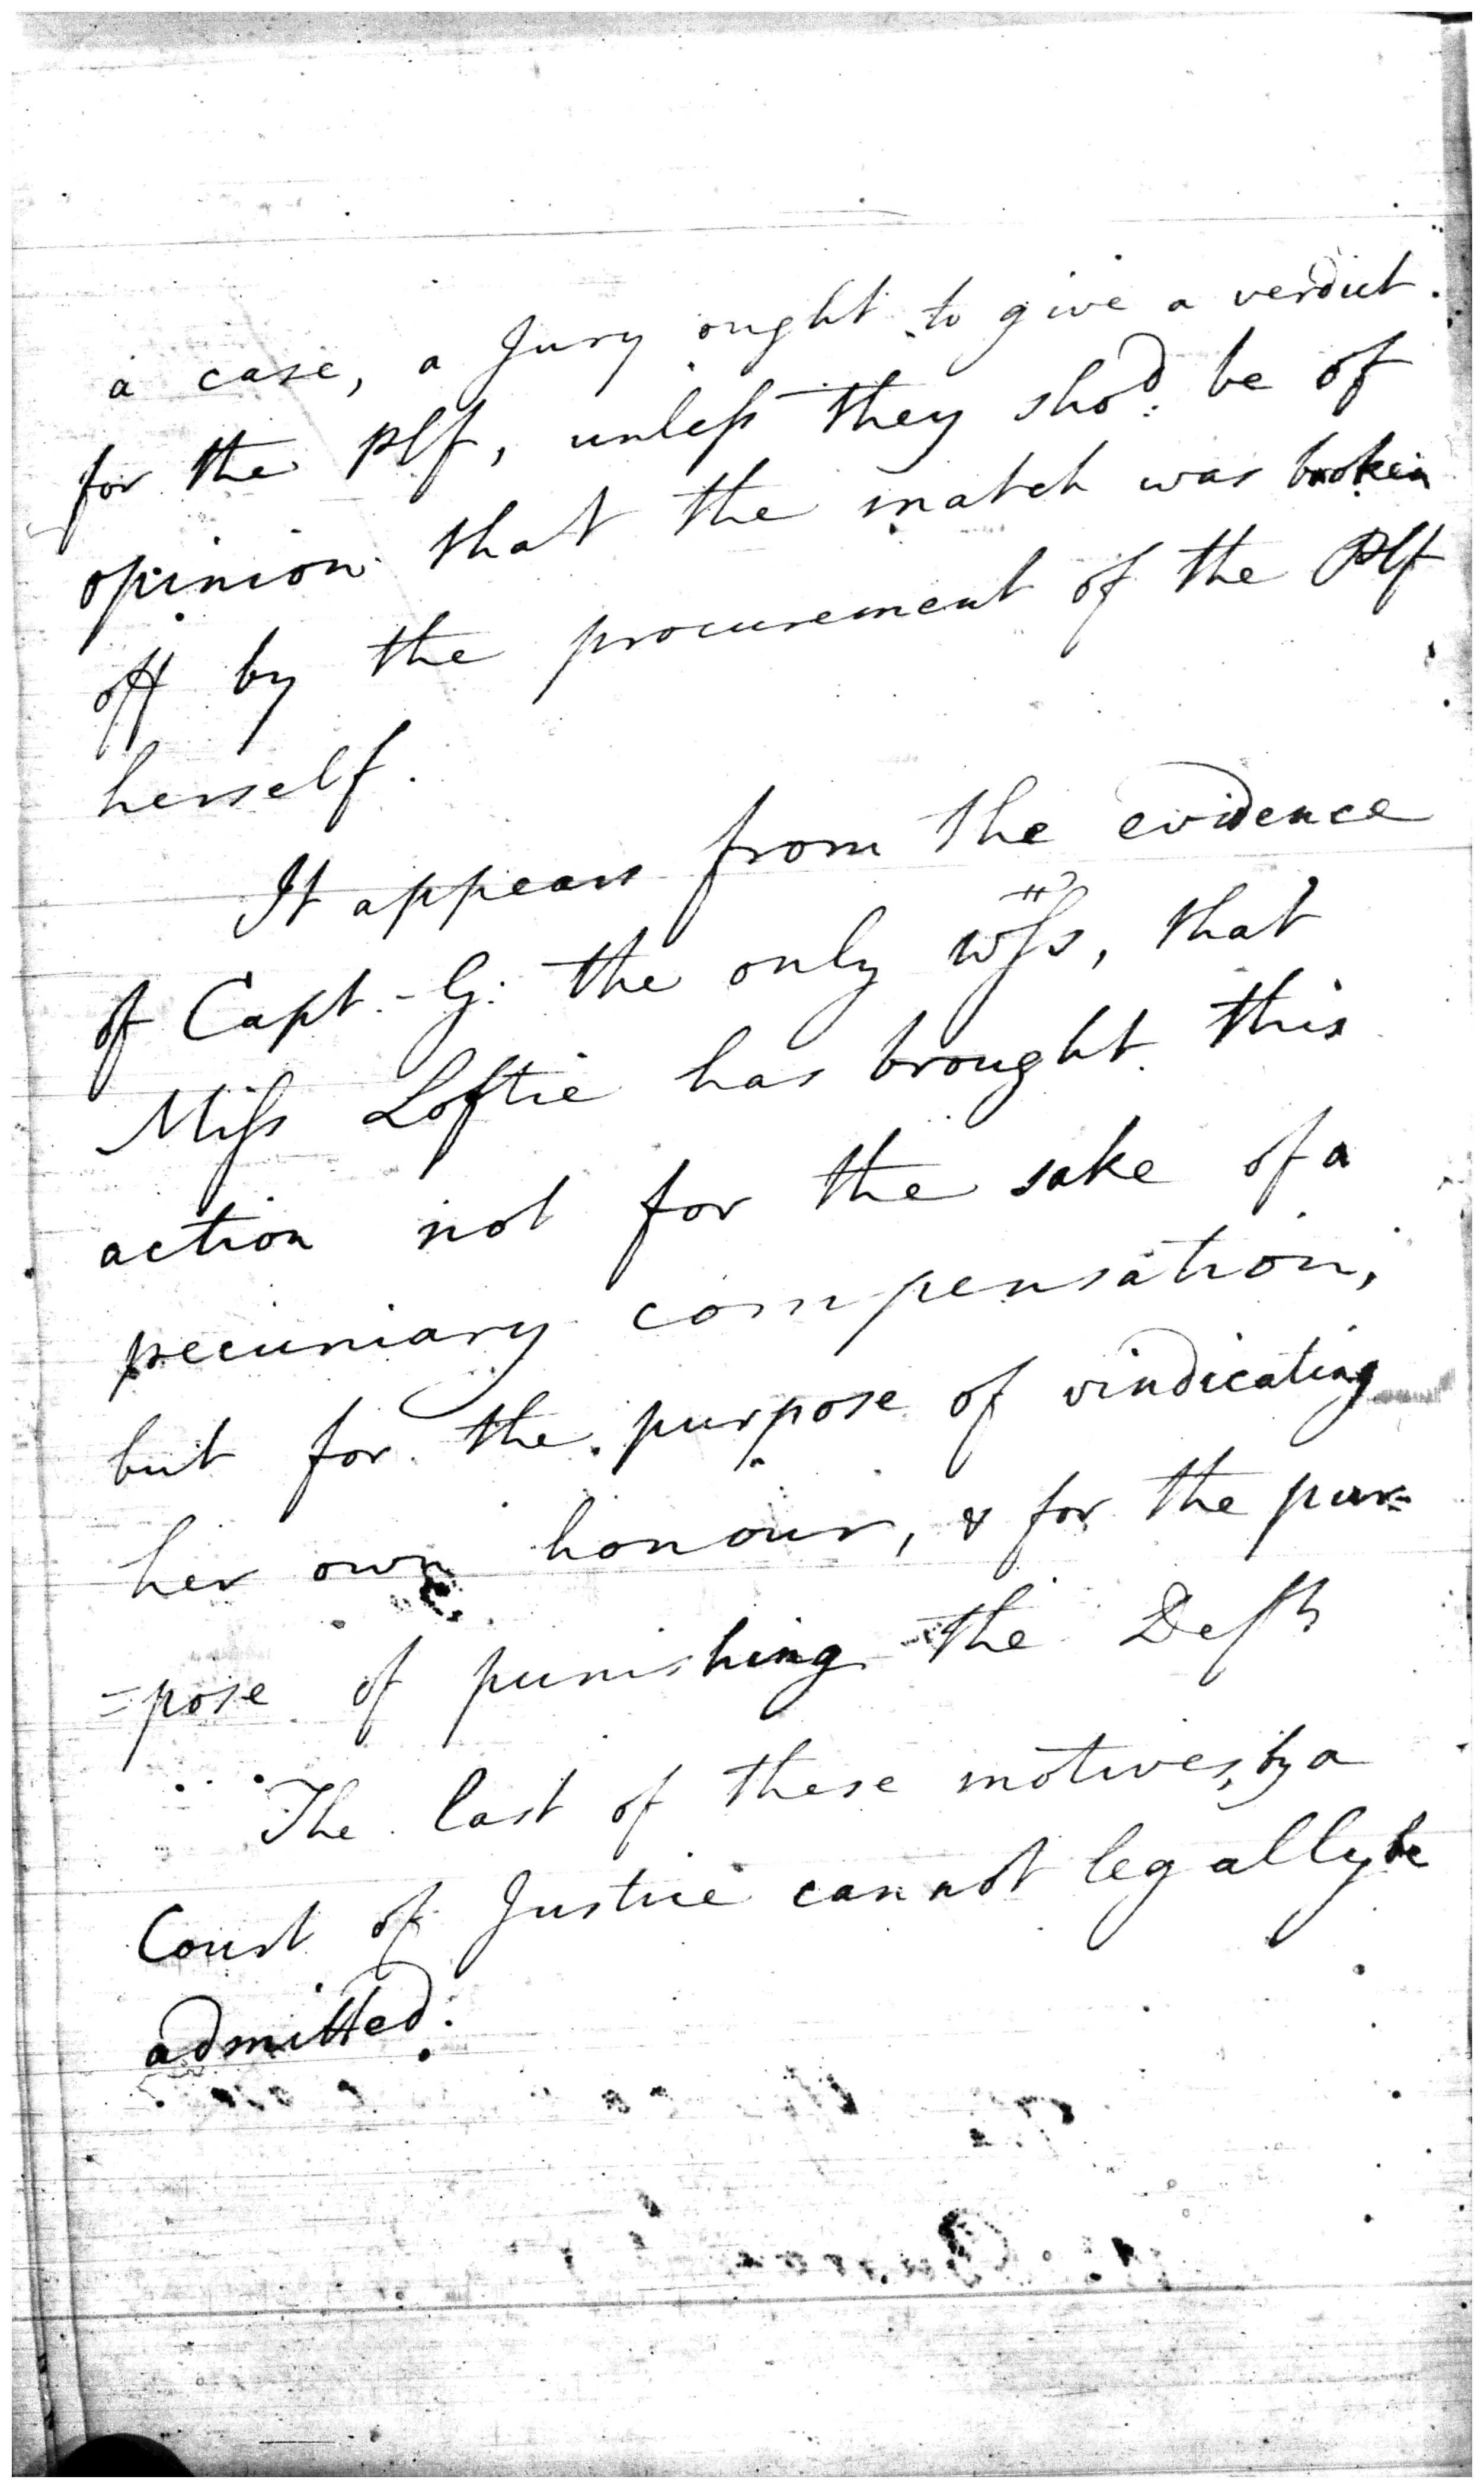 a case, a Jury ought to give a verdict
for the Plf, unless they shod. be of
opinion that the match was broken
off by the procurement of the Plf
herself.
It appears from the evidence
of Capt. G: the only wss, that
Miss Loftie has brought this
action not for the sake of a
pecuniary compensation,
but for the purpose of vindicating
her own honour, & for the pur=
=pose of punishing the Deft
The last of these motives, by a
Court of Justice cannot legally be
admitted.